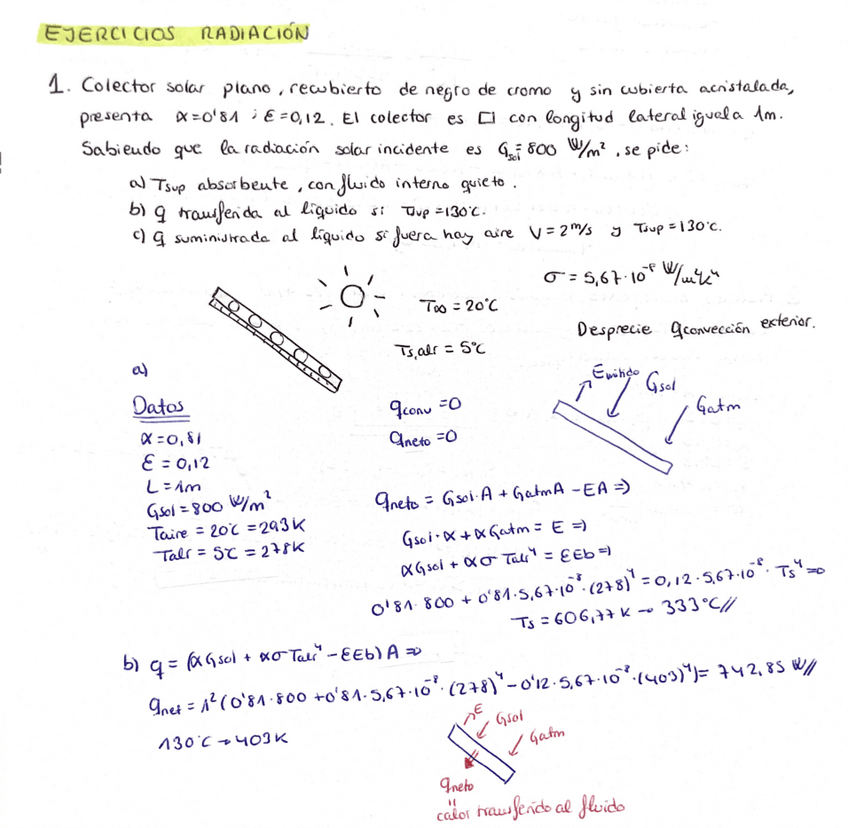 EJERCICIOS RADIACIÓN
1. Colector solar plano, recubierto de negro de cromo y sin cubierta acristalada,
presenta α=0'81 ; ε=0,12. El colector es □ con longitud lateral igual a 1m.
Sabiendo que la radiación solar incidente es Gsol=800 W/m², se pide:
a) Tsup absorbente, con fluido interno quieto.
b) q transferida al líquido si Tsup=130ºC.
c) q suministrada al líquido si fuera hay aire V=2m/s y Tsup=130ºC.
σ=5,67·10⁻⁸ W/m²K⁴
T∞=20ºC
Desprecie qconvección exterior.
Ts,alr=5ºC
a)
Emitido
Gsol
Gatm
Datos
α=0,81
ε=0,12
L=1m
Gsol=800 W/m²
Taire=20ºC=293K
Talr=5ºC=278K
qconv=0
qneto=0
qneto = Gsol·A + GatmA - EA ⇒
Gsol·α + αGatm = E ⇒
αGsol + ασTalr⁴ = εEb ⇒
0'81·800 + 0'81·5,67·10⁻⁸·(278)⁴ = 0,12·5,67·10⁻⁸·Ts⁴ ⇒
Ts = 606,77 K → 333ºC//
b) q = (αGsol + ασTalr⁴ - εEb)A ⇒
qnet = 1²(0'81·800 + 0'81·5,67·10⁻⁸·(278)⁴ - 0'12·5,67·10⁻⁸·(403)⁴) = 742,85 W//
130ºC → 403K
E
Gsol
Gatm
qneto
=
calor transferido al fluido